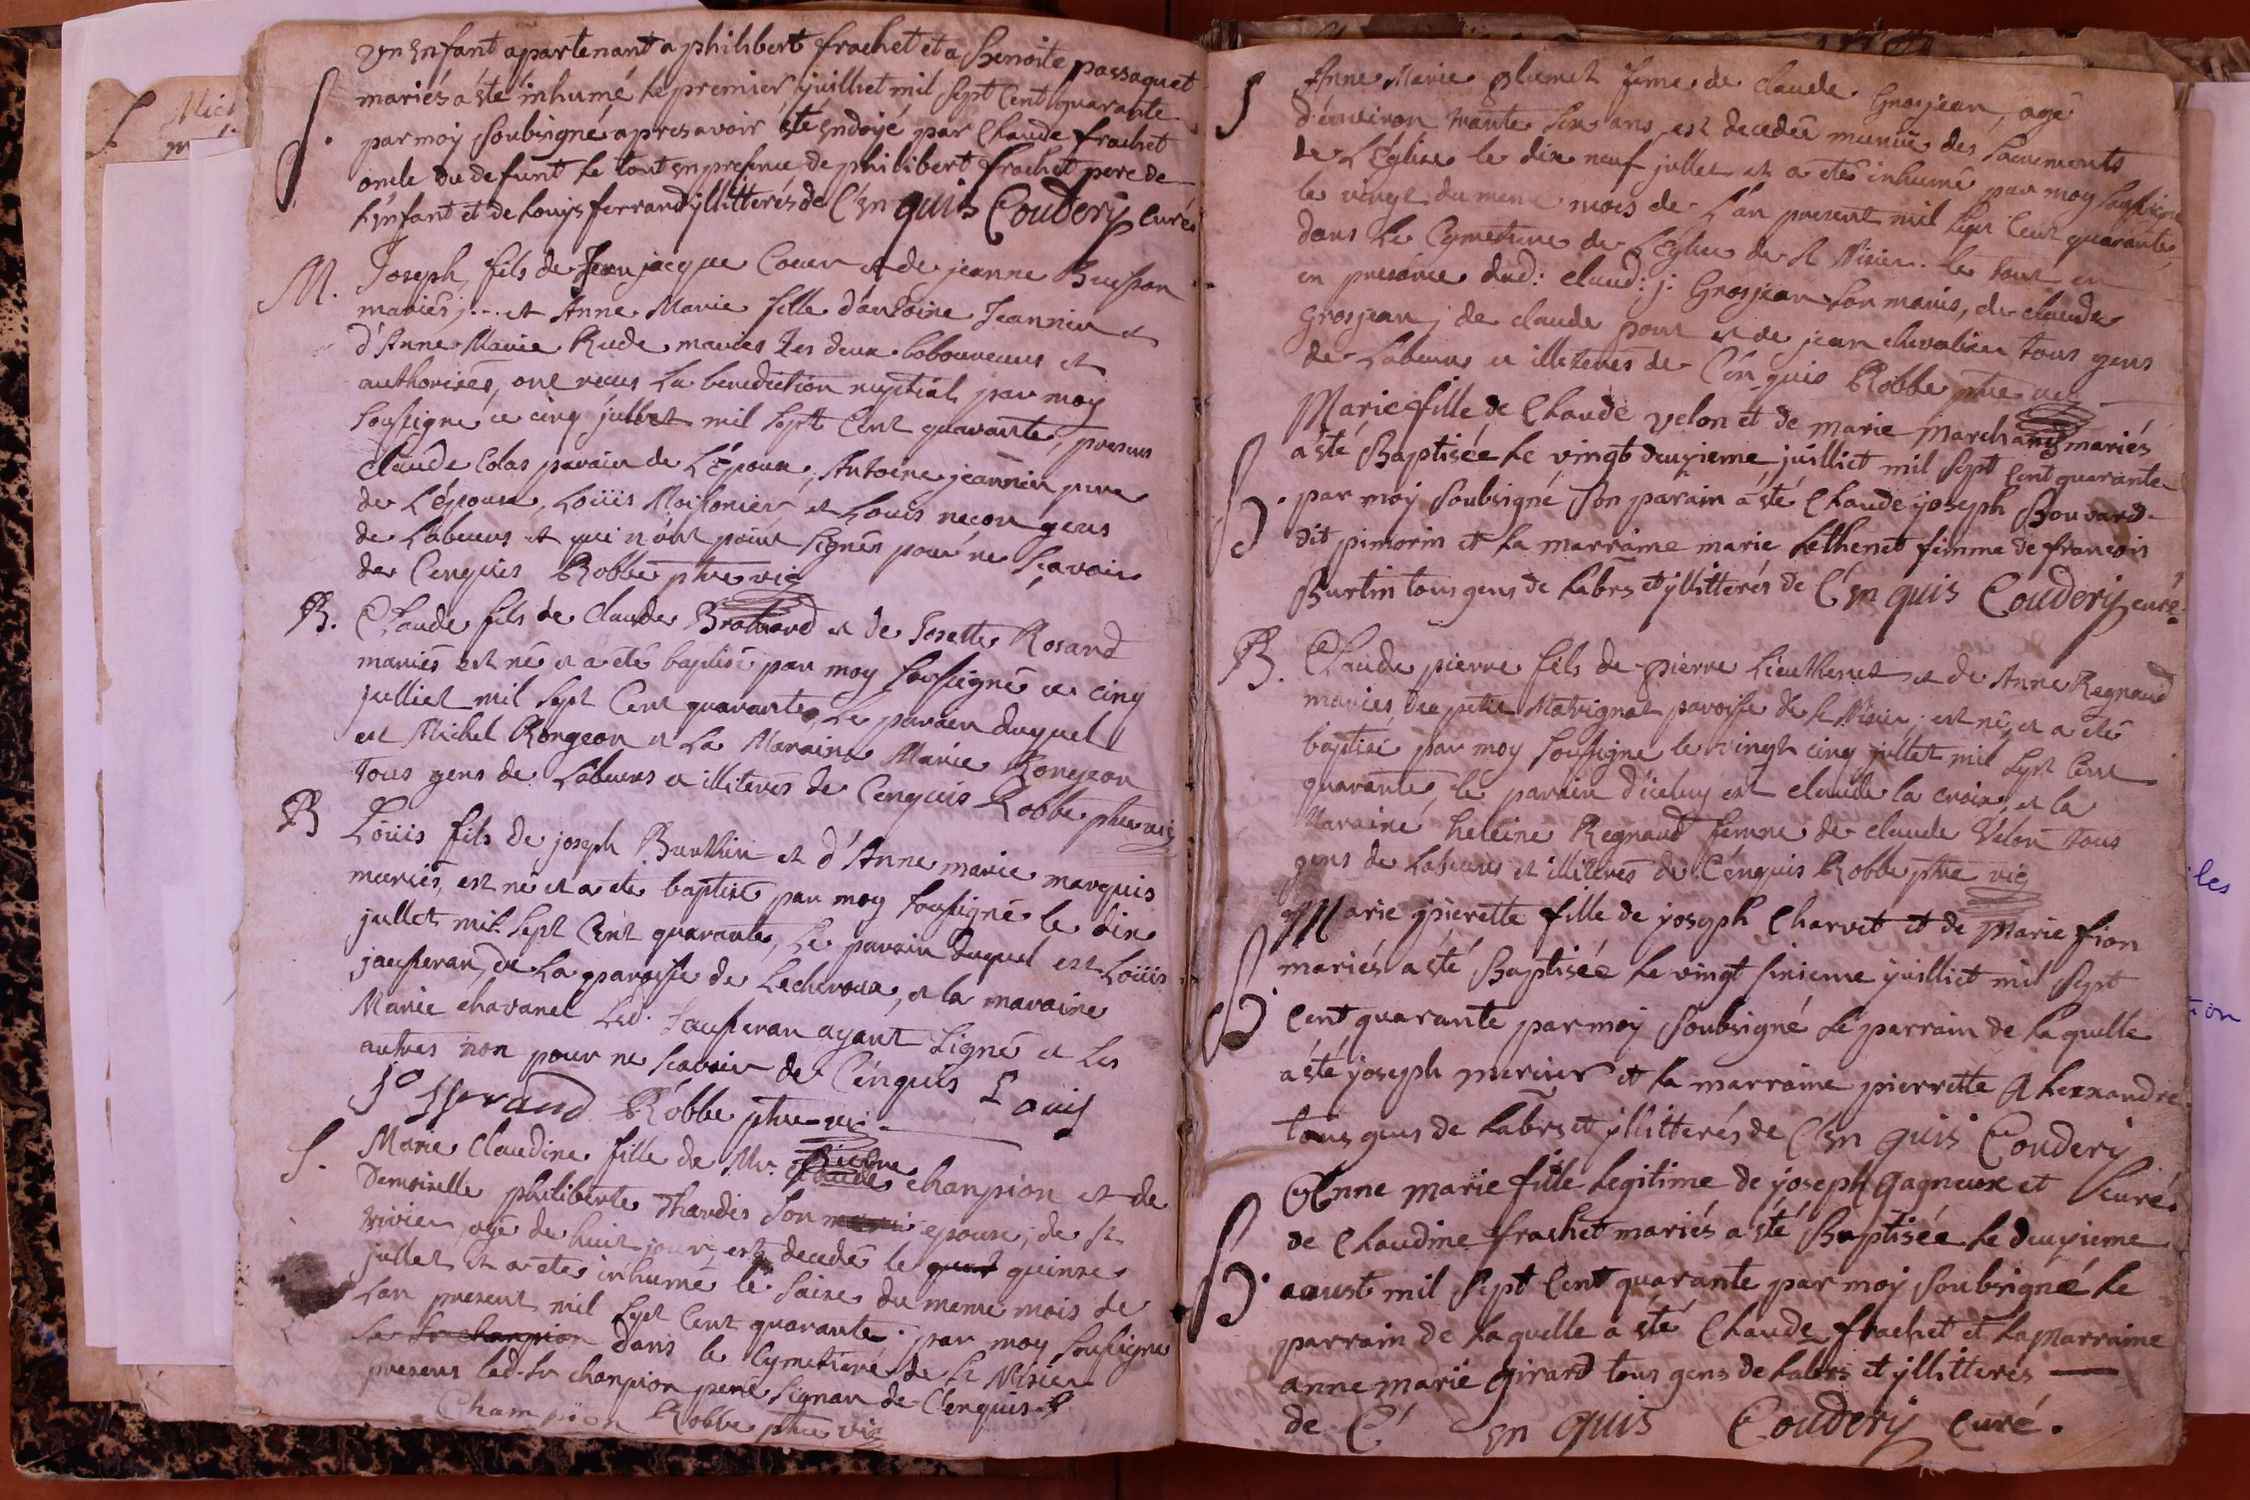 un Enfant apartenant a philibert frachet et a Benoite passaquet
S. mariés a été inhumé le premier juilliet mil sept Cent quarante
par moy soubsigné apres avoir été Endoyé par Claude frachet
oncle du defunt le tout en presence de philibert frachet pere de
l'Enfant et de Louys ferrand yllitterés de C'en quis Coudery Curé
M. Joseph fils de Jean jacque Couer et de jeanne Buisson
mariés; et Anne Marie fille d'antoine Jeannin et
d'Anne Marie Rude mariés les deux laboureurs et
authorisés, ont receus la benediction nuptial par moy
soussigné ce cinq jullet mil sept Cent quarante, presens
Claude Colas parain de L'Epoux, Antoine jeannin pere
de L'Epouse, Loüis Moisonier et Louis necon gens
de Labeurs et qui n'ont point signés pour ne sçavoir
de Cenquis Robbe ptre vic
B. Claude fils de Claude Brobard et de Josette Rosand
mariés est né et a eté baptisé par moy soussigné ce cinq
julliet mil sept Cent quarante, Le parain duquel
est Michel Rongeon et La Maraine Marie Rongeon
Tous gens de Labeurs et illiterés de Cenquis Robbe ptre vic
B Loüis fils de joseph Burthin et d'Anne marie marquis
mariés, est né et a eté baptisé par moy soussigné le dix
jullet mil sept Cent quarante, Le parain duquel est Loüis
jausseran, de La paroisse de Lechroux, et la maraine
Marie chavanel Led. Jausseran ayant signé et Les
autres non pour ne scavoir de Cénquis Louis
Jo sserand Robbe ptre vic
S. Marie Claudine fille de Mr. Pierre Claude chanpion et de
Demoiselle philiberte Thardis son epouse, de St
Vivier, agé de huit jours, est decedé le quinze
jullet et a eté inhumé le saize du meme mois de
Lan present mil sept Cent quarante par moy soussigné
Le Sr chanpion dans le Cymetiere de St Visier
presens led. Sr chanpion pere signan de Cenquis
Champion Robbe ptre vic
S Anne Marie plumet feme de claude Grosjean, agé
d'environ trante six ans est decedée munïe des sacrements
de L'Eglise le dix neuf jullet et a etée inhumé par moy soussigné
le vingt du meme mois de L'an present mil sept Cent quarante,
dans Le Cymetiere de L'Eglise de St Visier. le tout en
en presence dud: claud: j: Grosjean son maris, de claude
Grosjean; de claude pont et de jean chevalier tous gens
de Labeurs et illiterés de Cénquis Robbe ptre vic
Marie fille de Claude velon et de marie Marchand mariés
a été Baptisée le vingt deuxieme juilliet mil sept Cent quarante
B. par moy soubsigné son parain a été Claude joseph Bouvard
dit pimorin et la marraine marie Lethenet femme de francois
Burtin tous gens de Labrs et yllitterés de C'en quis Coudery curé.
B. Claude pierre fils de pierre Lieuthenet et de Anne Regnaud
mariés, du petit Matrignat paroisse de St Visier, est né, et a eté
baptisé par moy soussigné le vingt cinq jullet mil sept Cent
quarante, le parain d'icéluy est claude la croix, et la
Maraine heleine Regnaud femme de claude Velon tous
gens de Labeurs et illiterés de Cénquis Robbe ptre vic
Marie pierette fille de joseph Charvet et de Marie fion
mariés a été Baptisée le vingt sixieme juilliet mil sept
B. Cent quarante par moy soubsigné le parrain de laquelle
a été joseph mercier et la marraine pierrette Alexandre
tous gens de Labrs et yllitterés de C'en quis Coudery
Curé.
Anne marie fille legitime de joseph Gagneux et
de Claudine frachet mariés a été Baptisée le deuxieme
B. aoust mil sept Cent quarante par moy soubsigné le
parrain de laquelle a été Claude frachet et la Marraine
anne marie Girard tous gens de Labrs et yllitterés
de C' en quis Coudery Curé.
les